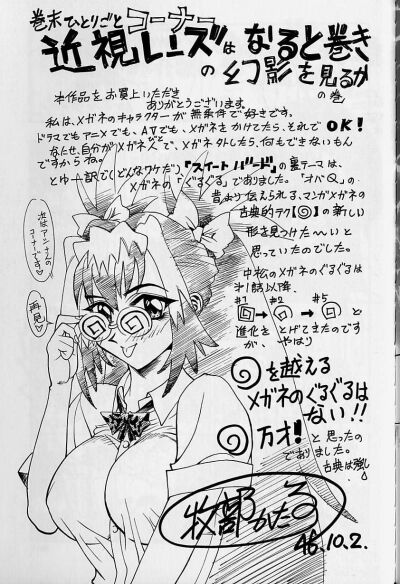 巻末ひとりごとコーナー
近視レンズは なると巻き
の幻影を見るか
の巻
本作品をお買上いただき
ありがとうございます。
私は、メガネのキャラクターが無条件で好きです。
ドラマでもアニメでも、AVでも、メガネをかけてたら、それでOK!
なにせ、自分がメガネ人で、メガネ外したら、何もできないもん
ですからね。
とゆー訳で(どんなワケだ)「スイートバード」の裏テーマは、
メガネの「ぐるぐる」でありました。「オバQ」の
昔より伝えられる、マンガメガネの
古典的テク【◎】の新しい
形を見つけた〜いと
思っていたのでした。
中松のメガネのぐるぐるは
#1話以降、
#1 #2 #5
→ → と
進化をとげてきたのです
が、やはり
を越える
メガネのぐるぐるは
ない!!
万才!と思ったの
でありました。
古典は強し
アンさんの
コーナーです♡
再見♡
牧部かたる
46.10.2.